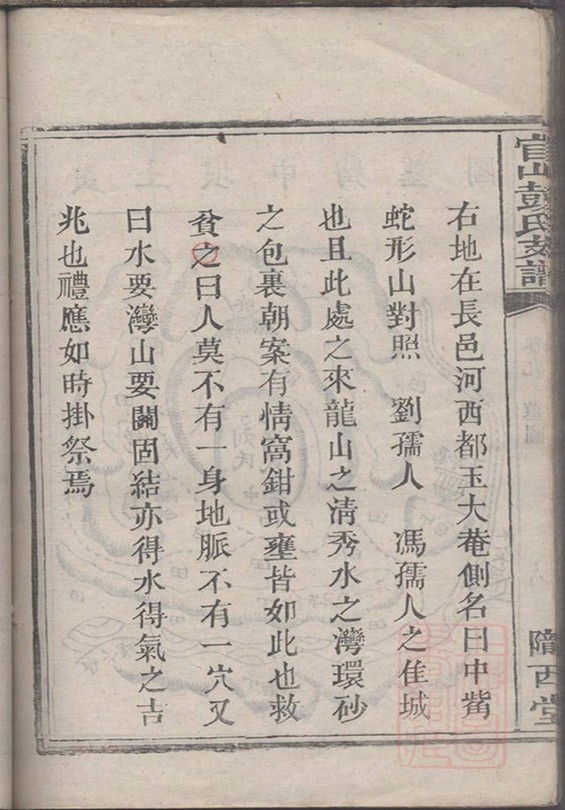 官山彭氏支譜
隴西堂
右地在長邑河西都玉大菴側名曰中嘴
蛇形山對照　劉孺人　馮孺人之佳城
也且此處之來龍山之清秀水之灣環砂
之包裹朝案有情窩鉗或壅皆如此也救
貧之曰人莫不有一身地脈不有一穴又
曰水要灣山要關固結亦得水得氣之吉
兆也禮應如時掛祭焉